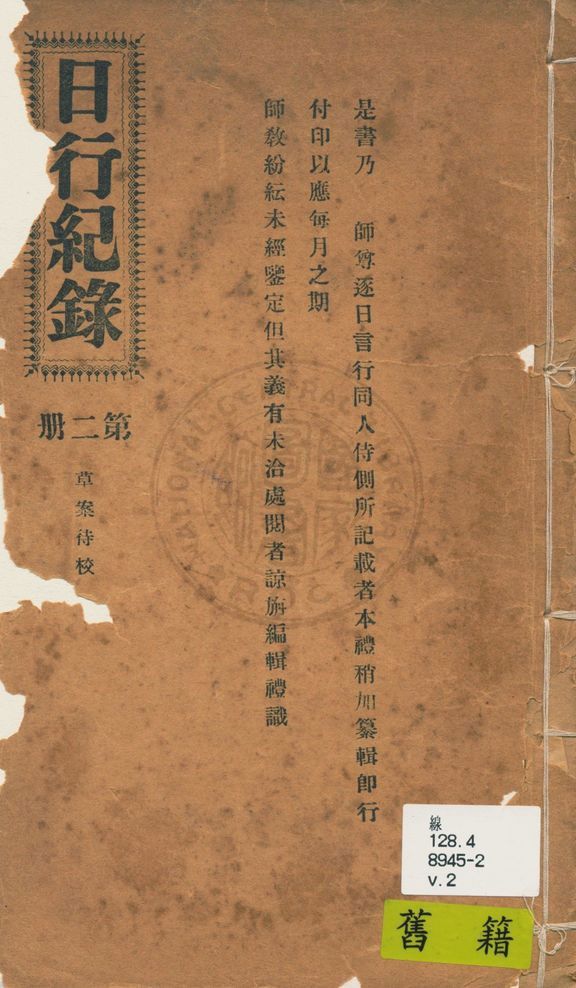 是書乃　師尊逐日言行同人侍側所記載者本禮稍加纂輯即行
付印以應每月之期
師教紛紜未經鑒定但其義有未洽處閱者諒旃編輯禮識
日行紀錄
第二册
草案待校
線
128.4
8945-2
v.2
舊籍